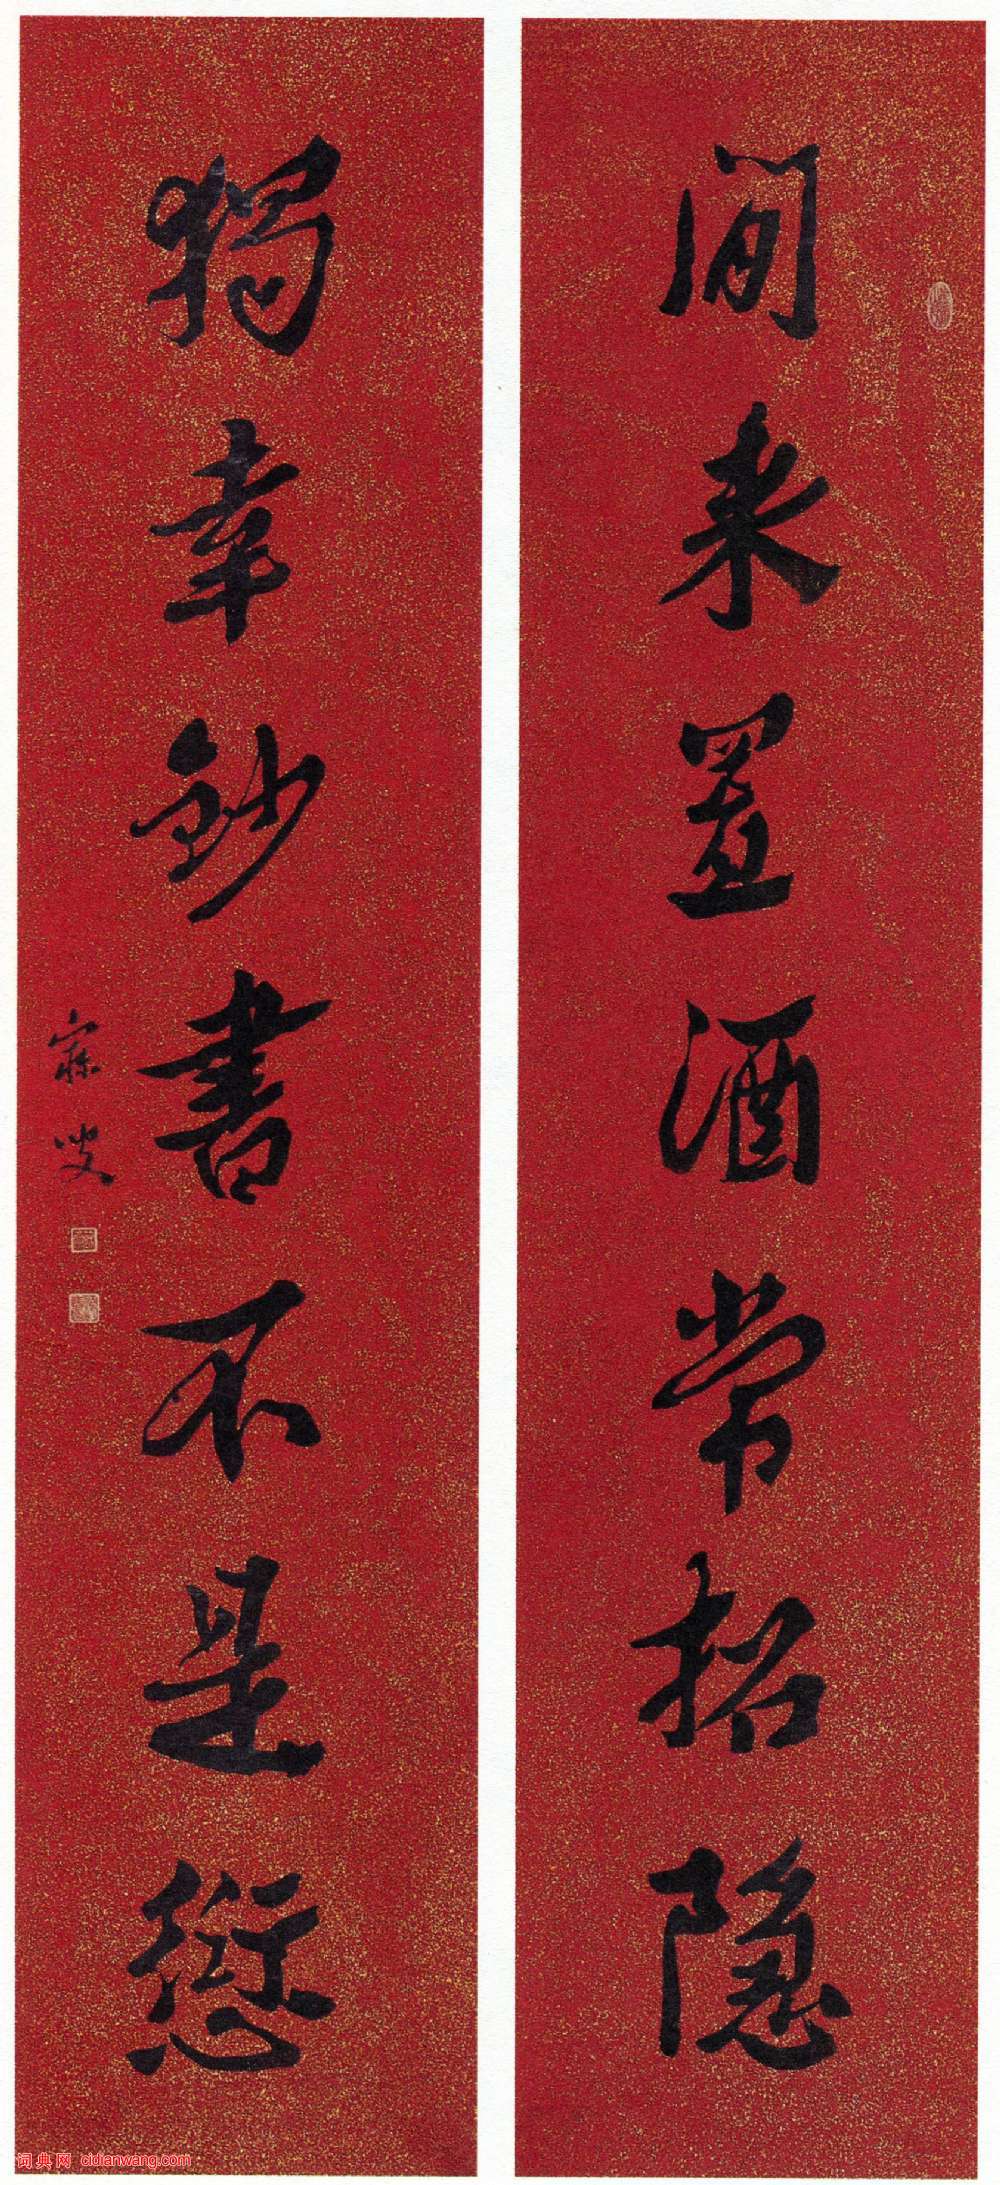 閒来置酒常招隐
獨幸鈔書不是愆
寐叟
词典网 cidianwang.com